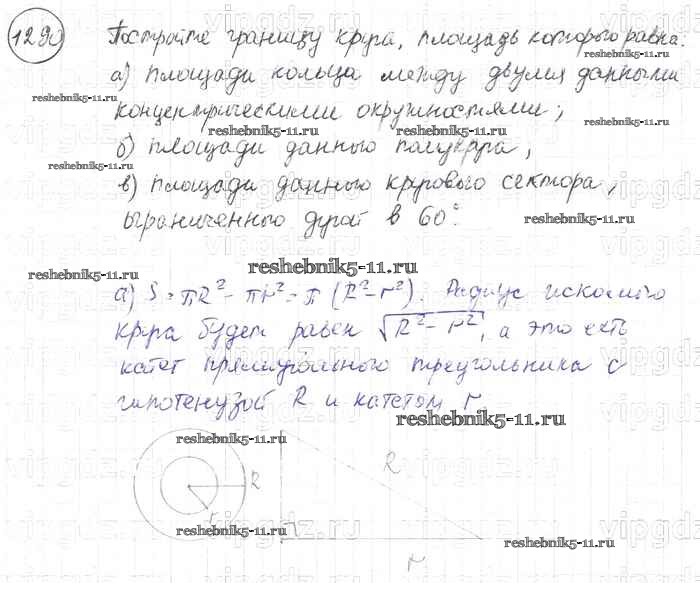 1290 Постройте границу круга, площадь которого равна:
а) площади кольца между двумя данными
концентрическими окружностями;
б) площади данного полукруга,
в) площади данного кругового сектора,
ограниченного дугой в 60°.
а) S = πR² - πr² = π(R² - r²). Радиус искомого
круга будет равен √R² - r², а это есть
катет прямоугольного треугольника с
гипотенузой R и катетом r
R
r
R
r
reshebnik5-11.ru
reshebnik5-11.ru
reshebnik5-11.ru
reshebnik5-11.ru
reshebnik5-11.ru
reshebnik5-11.ru
reshebnik5-11.ru
reshebnik5-11.ru
reshebnik5-11.ru
reshebnik5-11.ru
reshebnik5-11.ru
reshebnik5-11.ru
reshebnik5-11.ru
reshebnik5-11.ru
vipgdz.ru
vipgdz.ru
vipgdz.ru